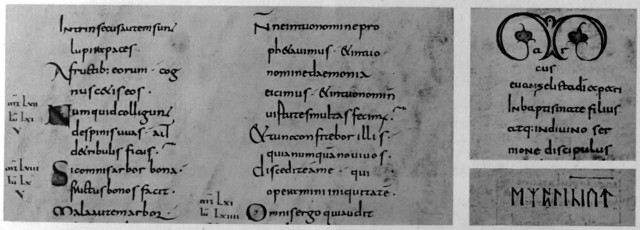 Intrinsecus autem sunt
lupi rapaces ·
A fructib: eorum · cog
nuscetis eos ·
mt LXII
lu LXI
V
Numquid colligunt
despinis uuas · aut
detribulis ficus ·
mt LXIII
lu LX
V
Sicomnis arbor bona ·
fructus bonos facit ·
Mala autem arbor ·
N̄ne in tuo nomine pro
phetauimus · & in tuo
nomine daemonia
eicimus · & in tuo nomin̄
uirtutes multas fecim̄
& tunc confitebor illis ·
quia numquā noui uos ·
discedite a me · qui
operemini iniquitatē ·
mt LXI
lu LXIIII
Omnis ergo qui audit
Mar
cus
euangelista di et petri
In baptismate filius
atq· in diuino ser
mone discipulus